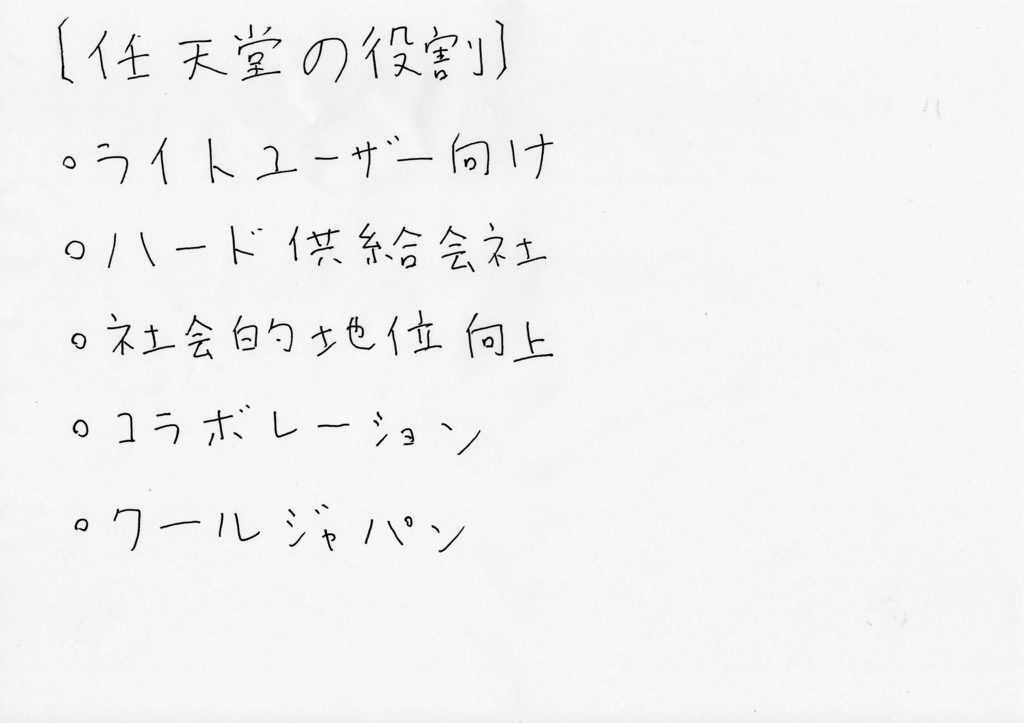 [任天堂の役割]
○ライトユーザー向け
○ハード供給会社
○社会的地位向上
○コラボレーション
○クールジャパン